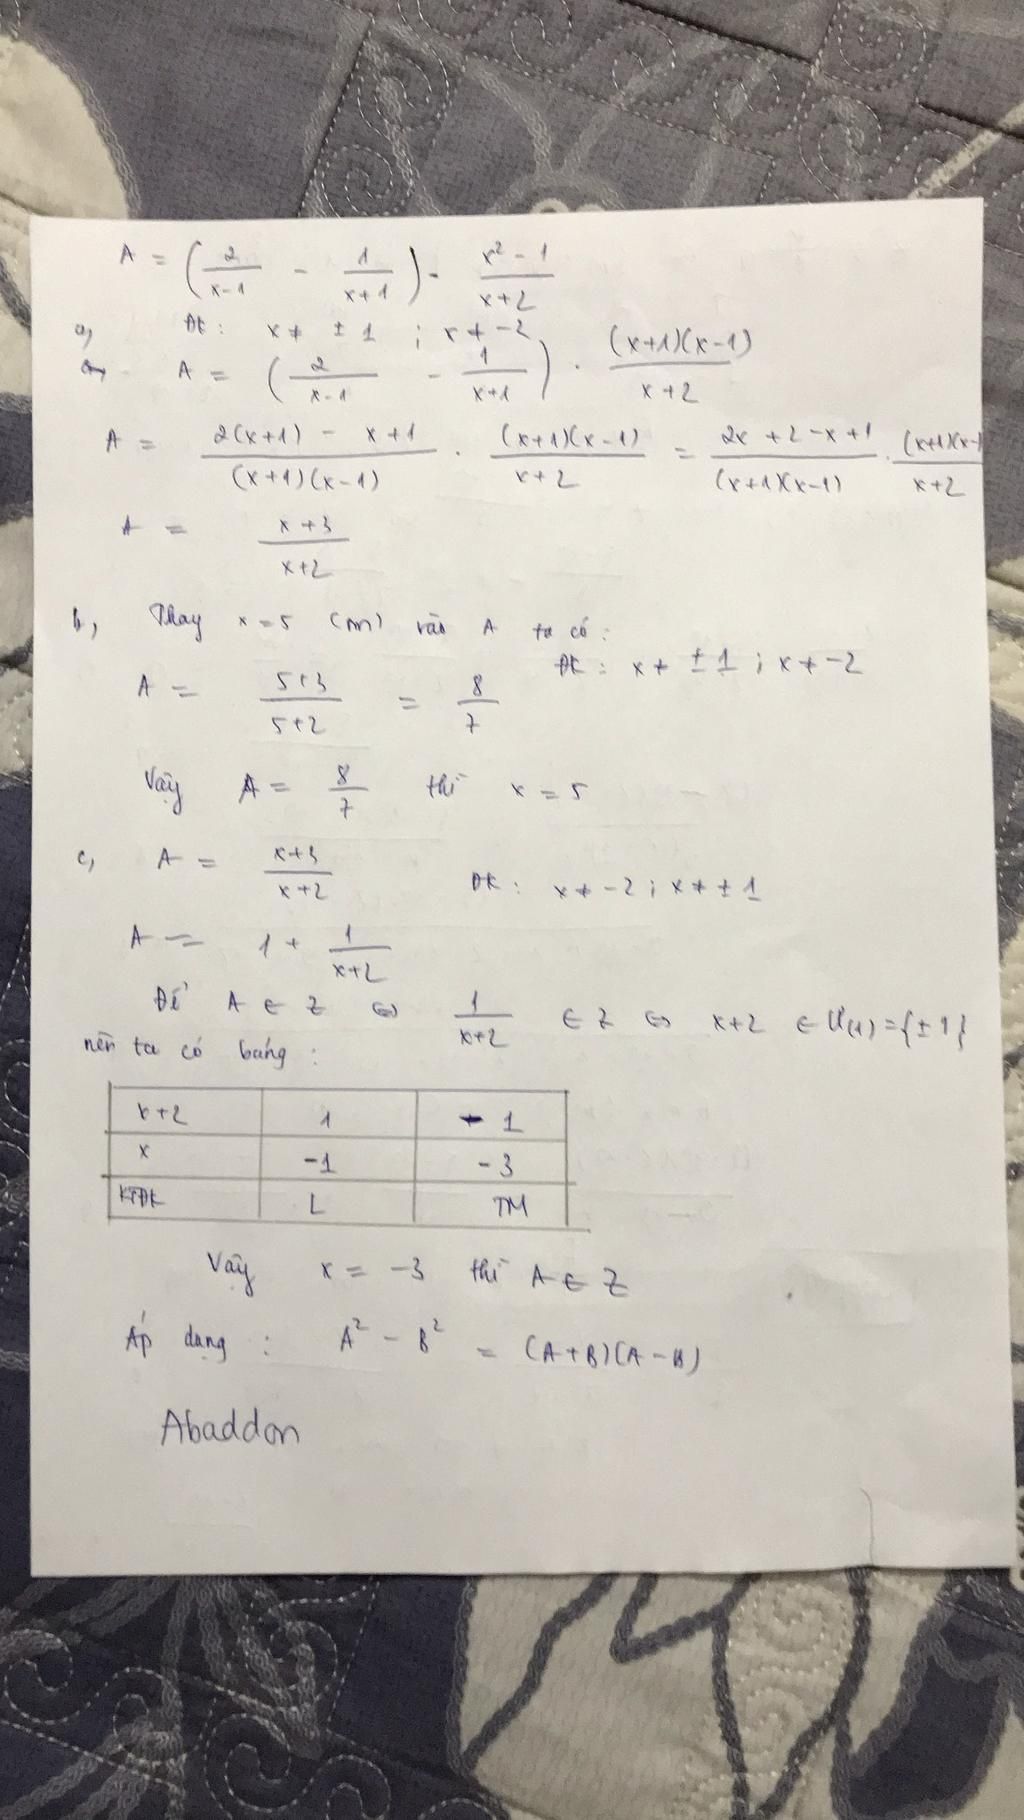 A = (2/(x-1) - 1/(x+1)) · (x² - 1)/(x+2)
a, ĐK: x ≠ ±1 ; x ≠ -2
A = (2/(x-1) - 1/(x+1)) · (x+1)(x-1)/(x+2)
A = (2(x+1) - x+1)/((x+1)(x-1)) · (x+1)(x-1)/(x+2) = (2x+2-x+1)/((x+1)(x-1)) · (x+1)(x-1/(x+2)
A = (x+3)/(x+2)
b, Thay x=5 (m) vào A ta có:
ĐK: x ≠ ±1 ; x ≠ -2
A = (5+3)/(5+2) = 8/7
Vậy A = 8/7 thì x = 5
c, A = (x+3)/(x+2) ĐK: x ≠ -2 ; x ≠ ±1
A = 1 + 1/(x+2)
Để A ∈ Z ⇔ 1/(x+2) ∈ Z ⇔ x+2 ∈ Ư(1)={±1}
nên ta có bảng:
x+2 1 -1
x -1 -3
KTĐK L TM
Vậy x = -3 thì A ∈ Z
Áp dụng: A² - B² = (A+B)(A-B)
Abaddon